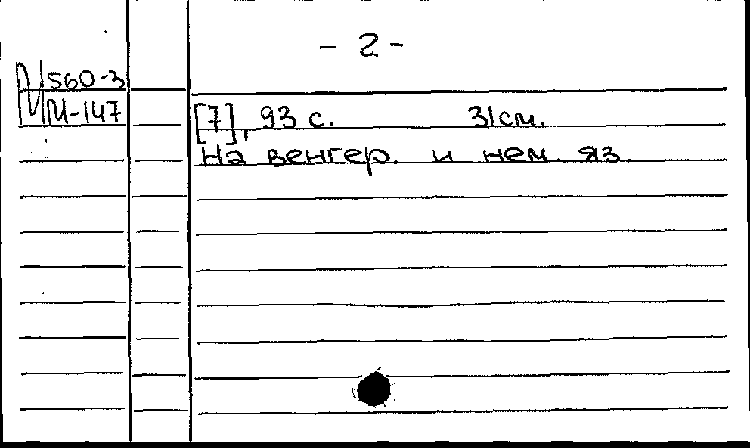 - 2 -
И 560-3
И-147
[7], 93 с. 31см.
На венгер. и нем. яз.